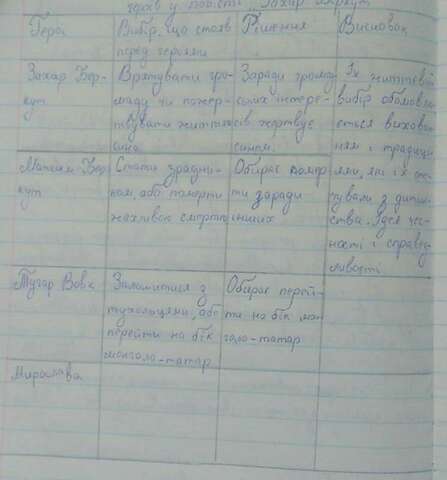 герїв у повісті "Захар Беркут"
Герої
Вибір, що стояв перед героями
Рішення
Висновок
Захар Бер-
кут
Врятувати гро-
маду чи пожер-
твувати життям
сина
Заради громад-
ських інтере-
сів жертвує
сином.
Їх життєвий
вибір обумовлю-
ється вихован-
ням і традиці-
ями, які їх ото-
чували з дитин-
ства. Ідея чес-
ності і справед-
ливості
Максим Бер-
кут
Стати зрадни-
ком, або померти
жахливою смертю
Обирає помер-
ти заради
інших
Тугар Вовк
Залишитися з
тухольцями, або
перейти на бік
монголо-татар
Обирає перей-
ти на бік мон-
голо-татар
Мирослава